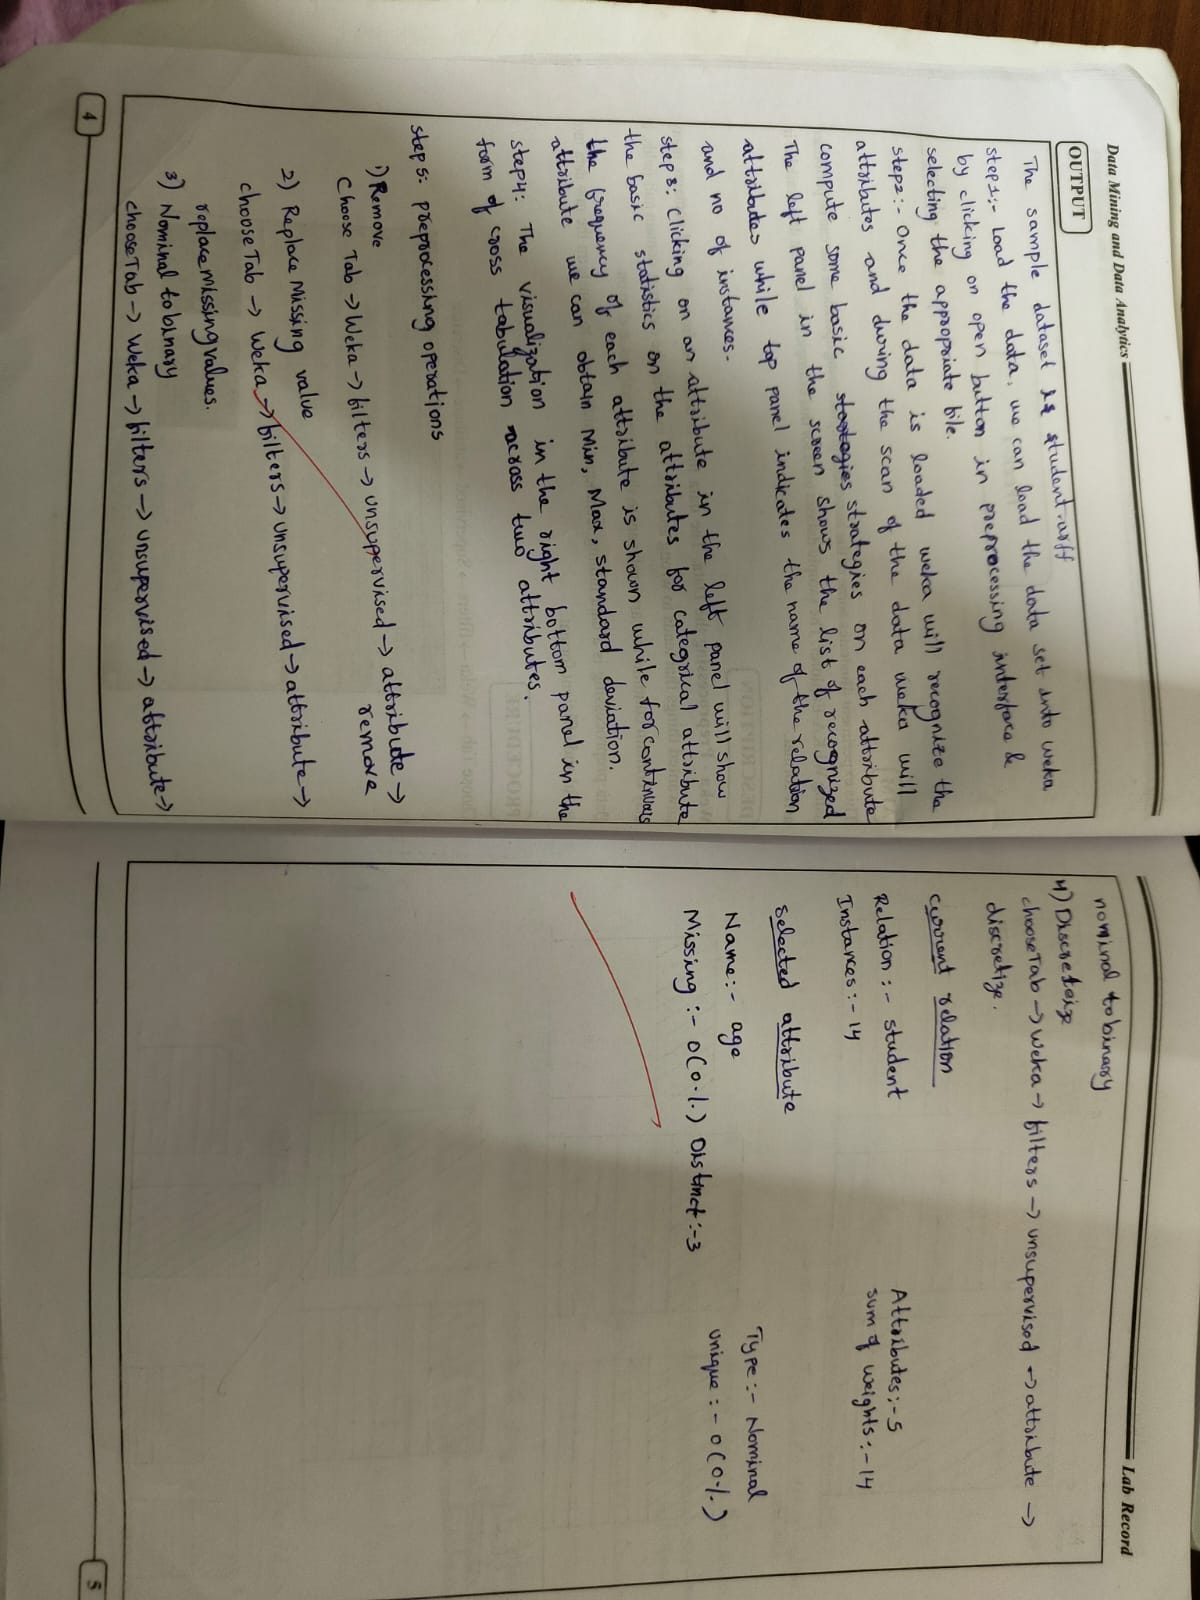 Data Mining and Data Analytics
OUTPUT
The sample dataset is student.arff
step1:- Load the data, we can load the data set into weka
by clicking on open button in preprocessing interface &
selecting the appropriate file.
step2:- Once the data is loaded weka will recognize the
attributes and during the scan of the data weka will
compute some basic strategies on each attribute
The left panel in the screen shows the list of recognized
attributes while top panel indicates the name of the relation
and no of instances.
step3: Clicking on an attribute in the left panel will show
the basic statistics on the attributes for categrical attribute
the frequency of each attribute is shown while for continuous
attribute we can obtain Min, Max, standard deviation.
step4: The visualization in the right bottom panel in the
form of cross tabulation across two attributes.
step5: preprocessing operations
1) Remove
Choose Tab -> Weka -> filters -> unsupervised -> attribute ->
remove
2) Replace Missing value
choose Tab -> Weka -> filters -> unsupervised -> attribute ->
replacemissingvalues.
3) Nominal to binary
choose Tab -> weka -> filters -> unsupervised -> attribute ->
4
Lab Record
nominal to binary
4) Discreteize
choose Tab -> weka -> filters -> unsupervised -> attribute ->
discretize.
current relation
Relation :- student Attributes:-5
Instances:-14 sum of weights:-14
selected attribute
Name:- age Type:- Nominal
Missing:- 0(0%) Distinct:-3 unique:-0(0%)
5